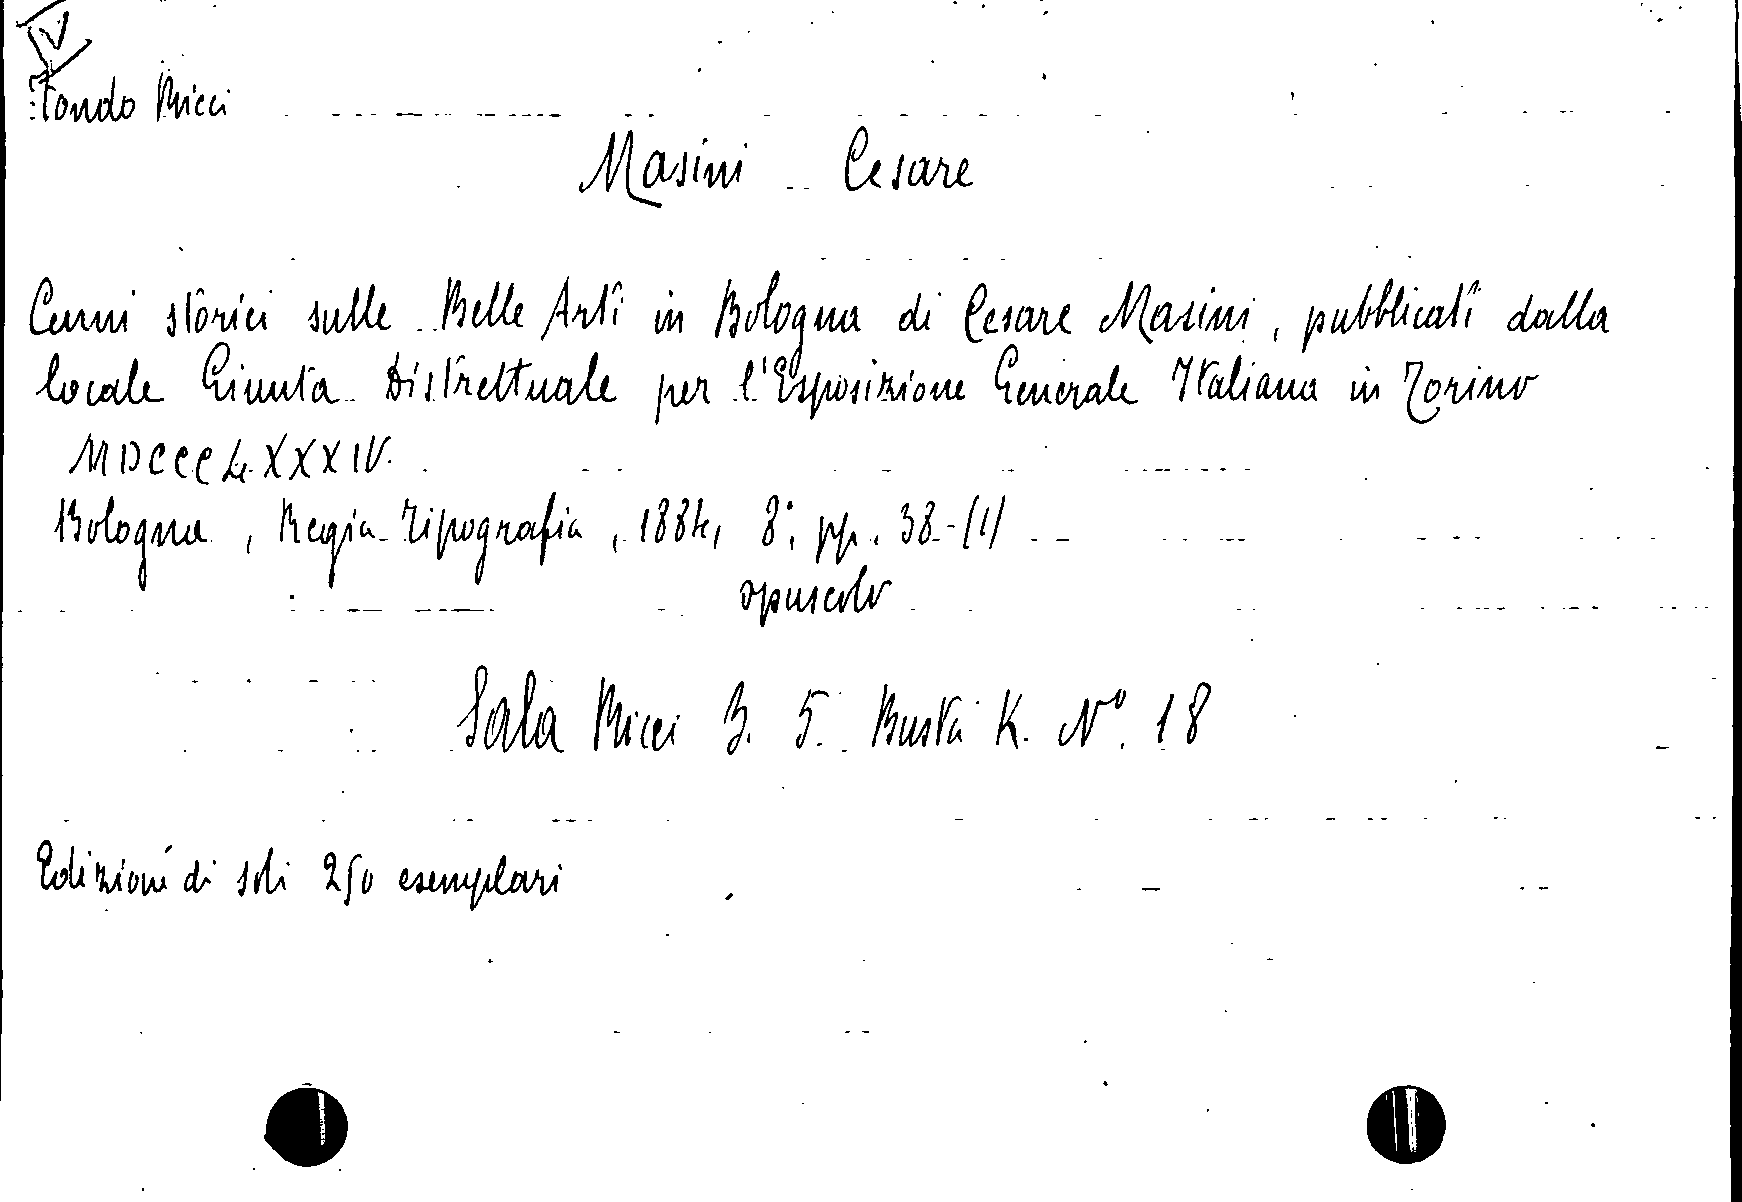 IV
Fondo Ricci
Masini Cesare
Cenni storici sulle Belle Arti in Bologna di Cesare Masini, pubblicati dalla
locale Giunta Distrettuale per l'Esposizione Generale Italiana in Torino
MDCCCLXXXIV.
Bologna, Regia Tipografia, 1884, 8°, pp. 38-(1)
opuscolo
Sala Ricci B. 5. Busta K. N° 18
Edizione di soli 250 esemplari